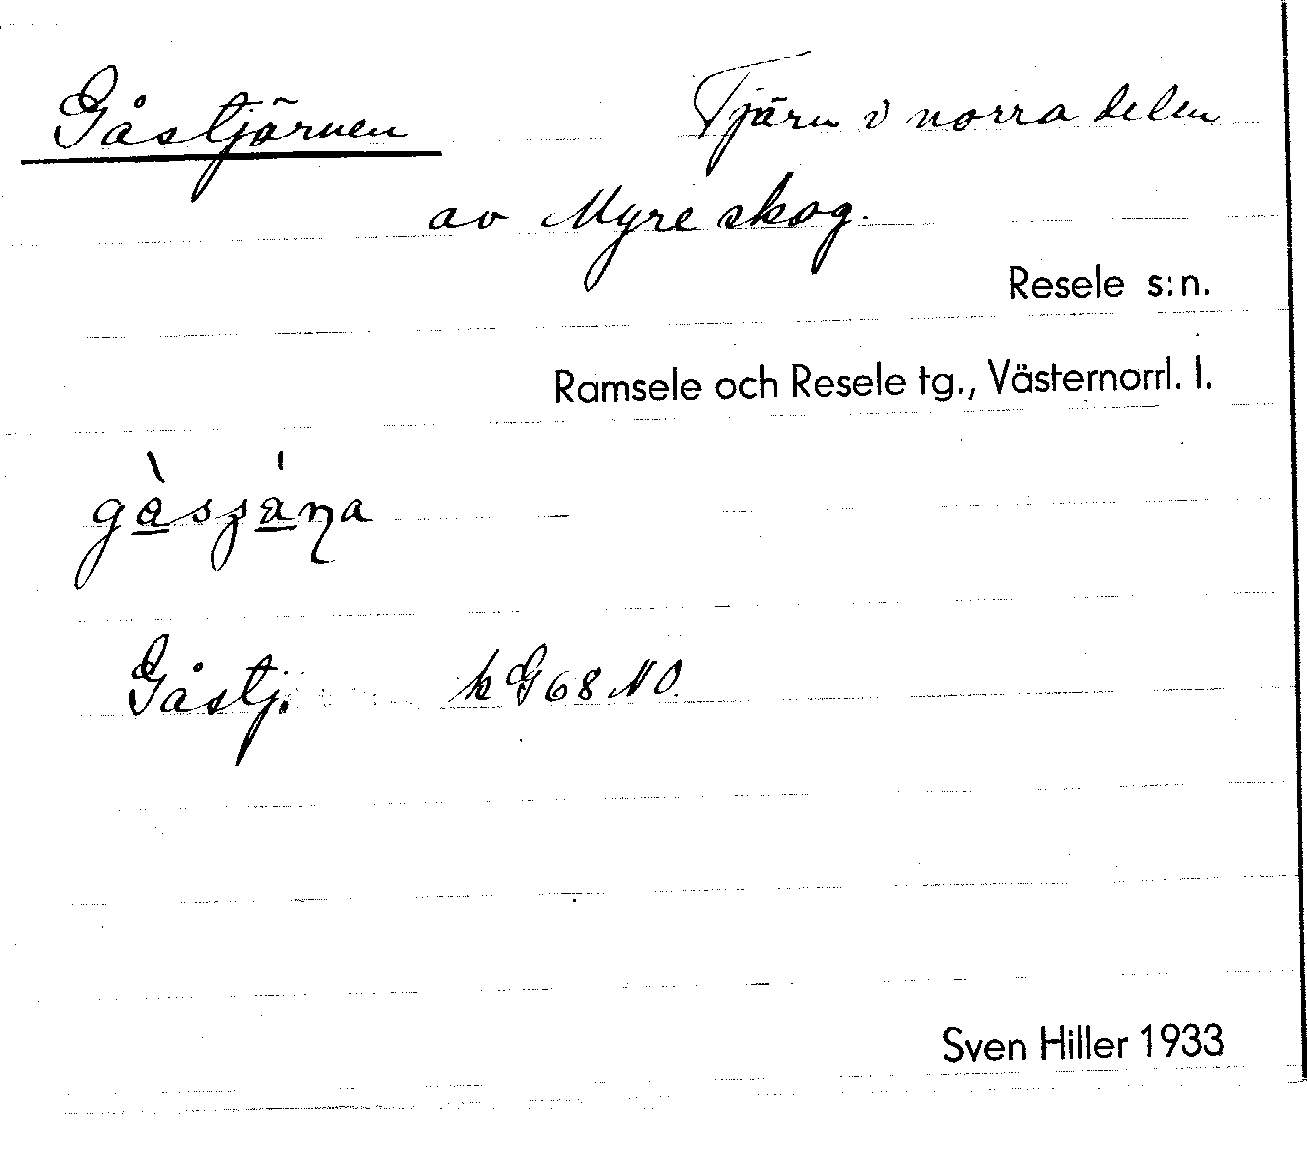 Gåstjärnen Tjärn i norra delen
av Myre skog.
Resele s:n.
Ramsele och Resele tg., Västernorrl. l.
Gåstj. k G68 NO.
Sven Hiller 1933